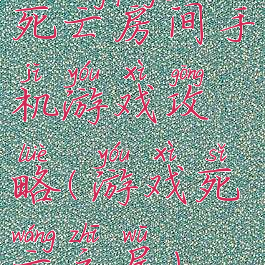 死亡房间手
jī yóu xì gōng
机游戏攻
lüè yóu xì sǐ
略(游戏死
wáng zhī wū